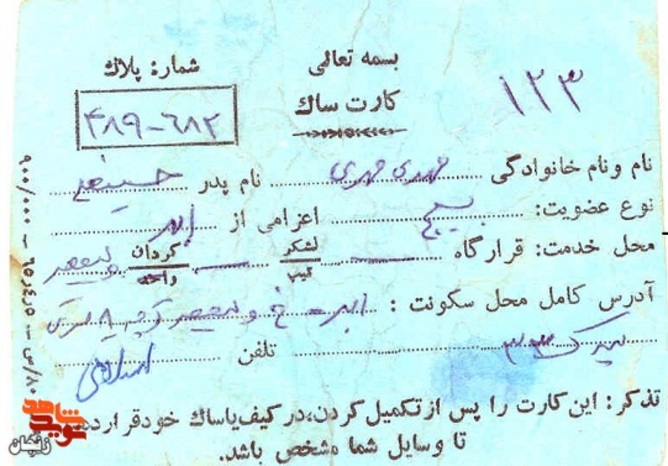 بسمه تعالی
شماره پلاك:
کارت ساك
۱۲۳
۴۸۹-۶۸۲
نام و نام خانوادگی مهدی مهری نام پدر حسینعلی
نوع عضویت: بسیج اعزامی از ابهر
محل خدمت: قرارگاه لشکر تیپ گردان واحد ولیعصر
آدرس کامل محل سکونت : ابهر - خ ولیعصر
پلاک ۳۳ تلفن
تذکر: این کارت را پس از تکمیل کردن، در کیف یا ساك خود قرار دهید
تا وسایل شما مشخص باشد.
۸۰/س - ۶۵٫۴٫۵ - ۹۰۰/۰۰۰
شاهد
نوید
زنجان